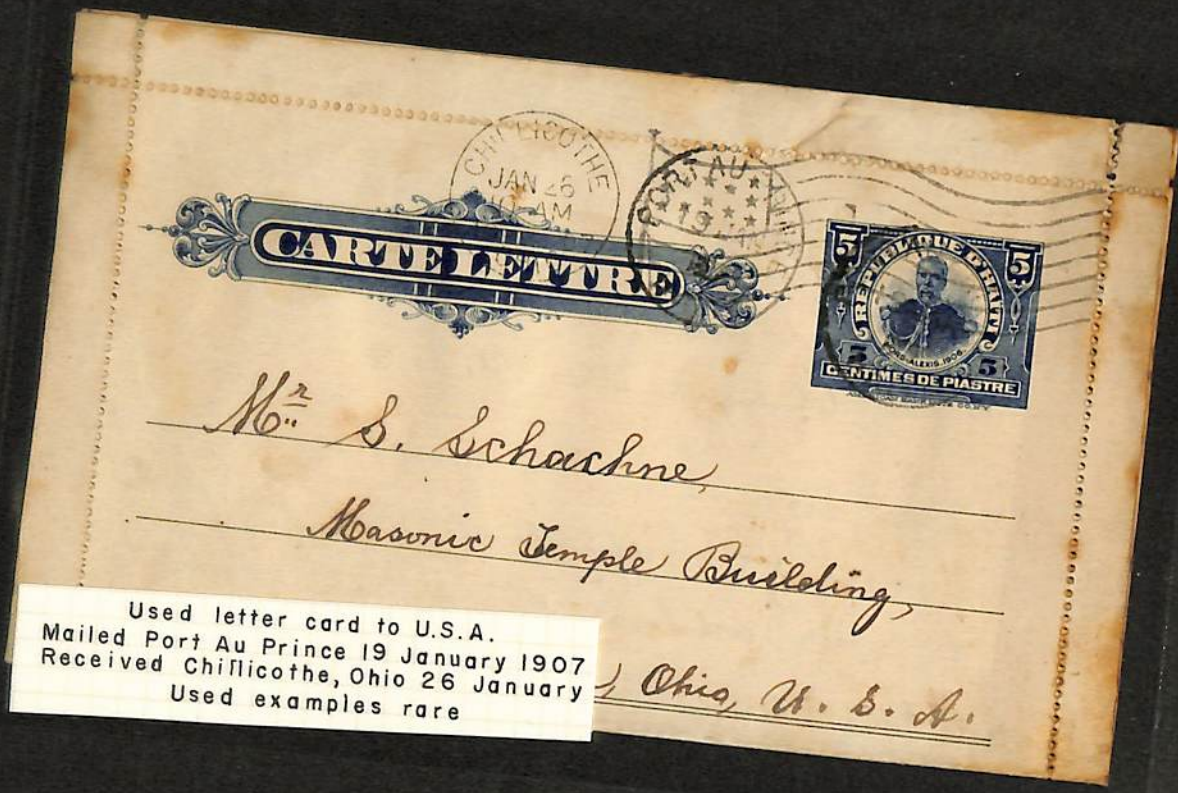 CHILLICOTHE
JAN 26
AM
PORT AU
19
CARTE LETTRE
5 5
REPUBLIQUE D'HAITI
NORD-ALEXIS. 1906.
5 5
CENTIMES DE PIASTRE
Mr. S. Schachne,
Masonic Temple Building,
Ohio, U. S. A.
Used letter card to U.S.A.
Mailed Port Au Prince 19 January 1907
Received Chillicothe, Ohio 26 January
Used examples rare